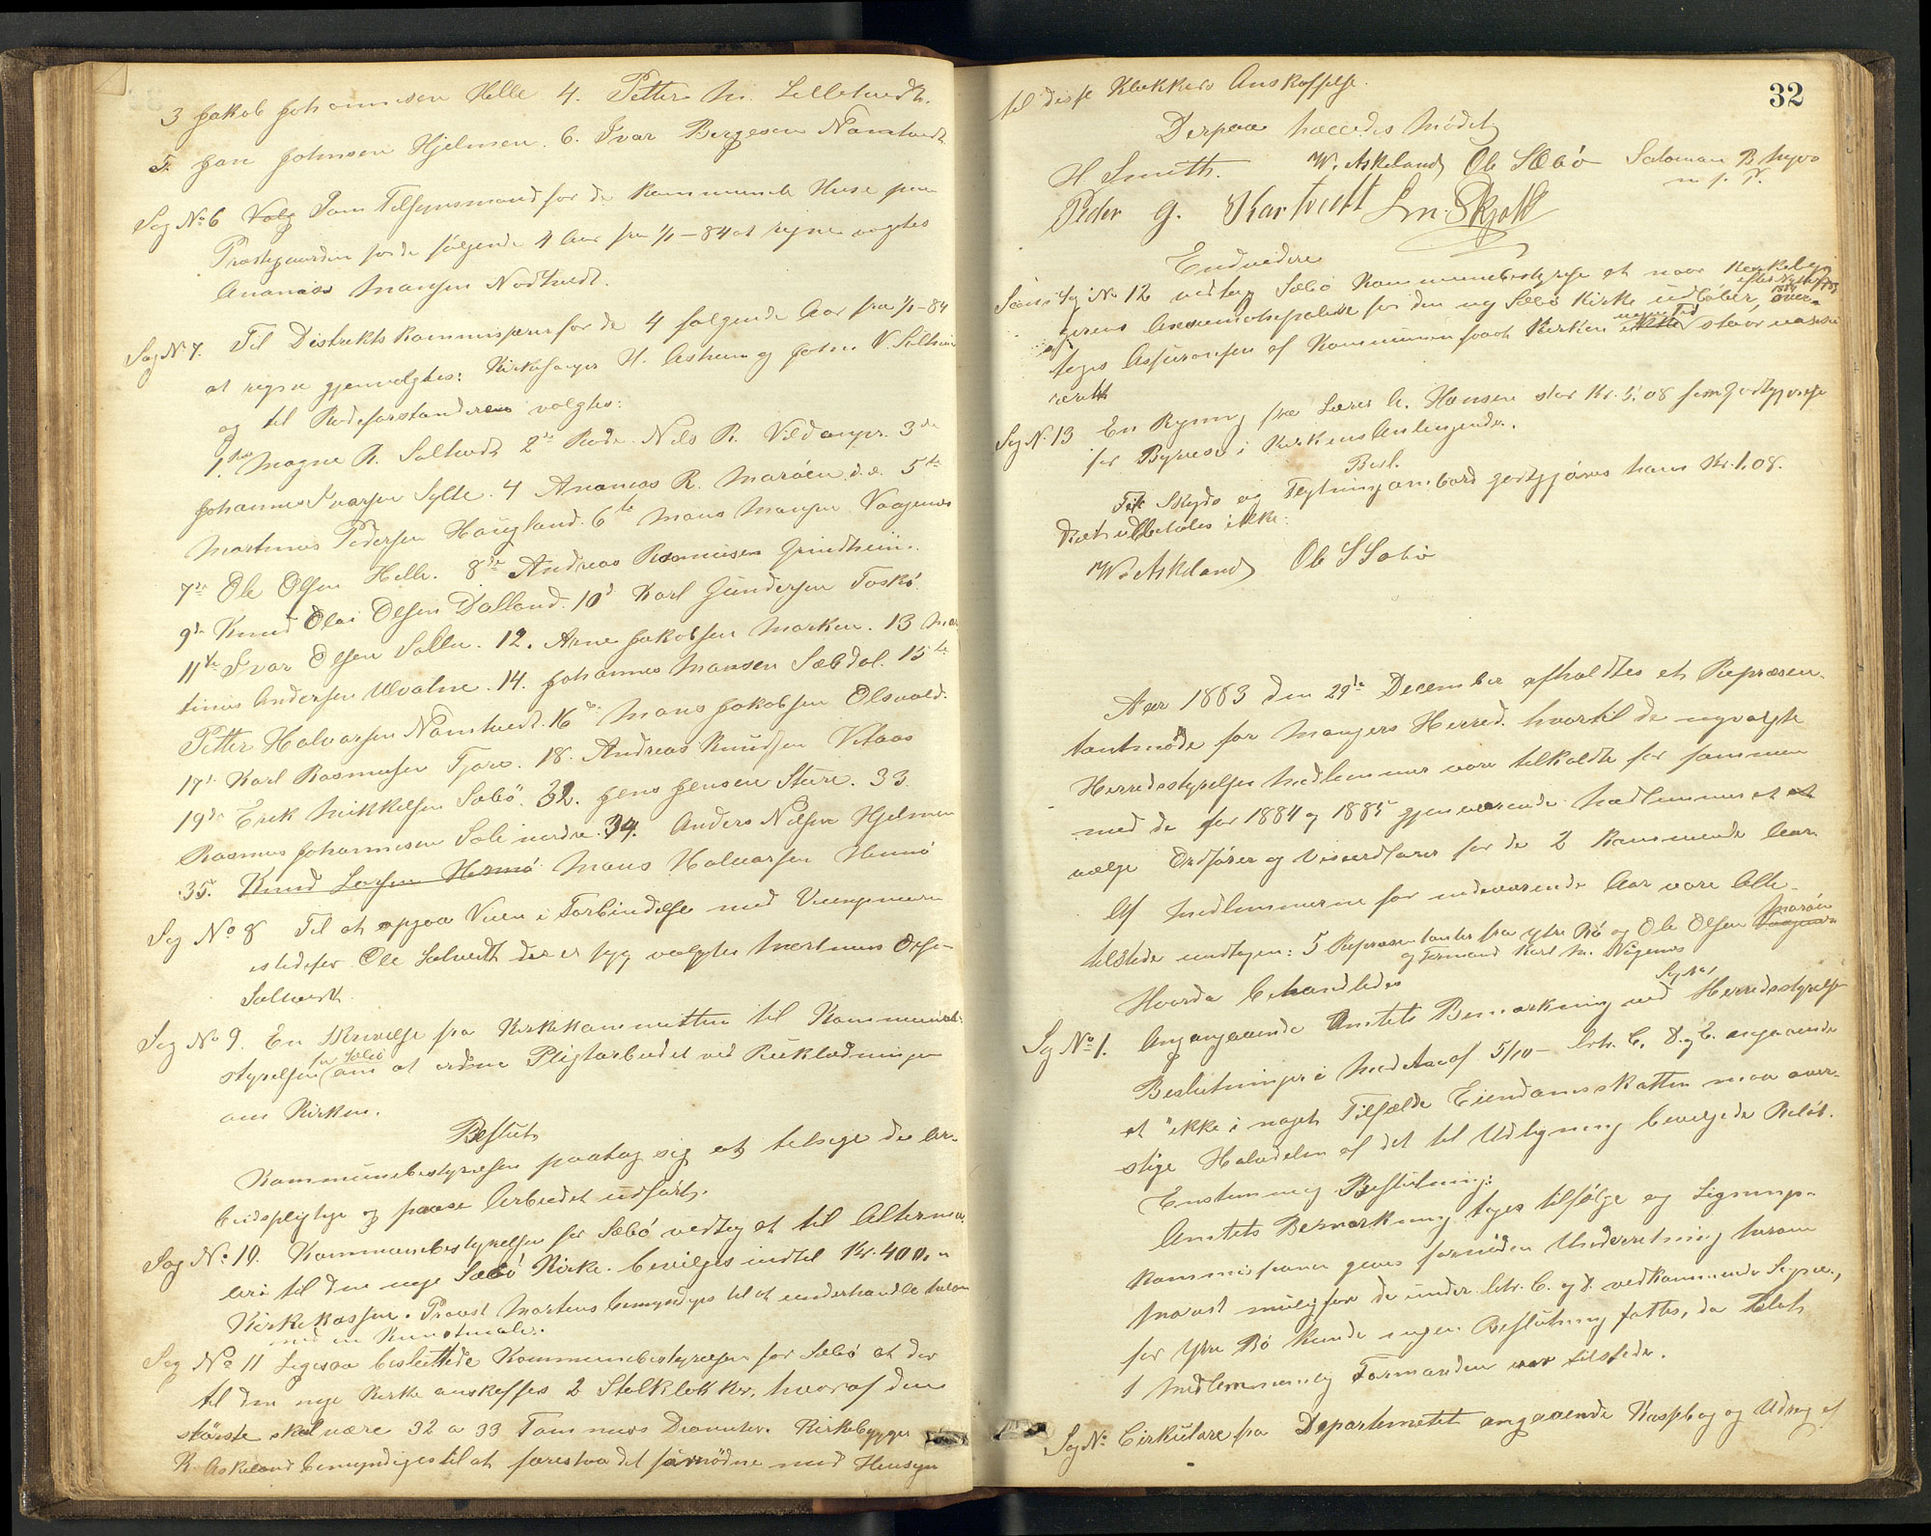 3 Jakob Johannesen Helle 4. Petter M. Lilletvedt.
5. Jan Johnsen Hjelmen. 6. Ivar Børgesen Namtvedt
Sag No 6 Valg Som Tilsynsmand for de kommunale Huse paa
Præstegaarden for de følgende 4 Aar fra 1/1-84 at regne valgtes
Ananias Mansen Nødtvedt.
Sag N 7. Til Distriktskommissærer for de 4 følgende Aar fra 1/1-84
at regne gjenvalgtes: Kirkesanger H. Askeland og John N.
og til Rodeforstandere valgtes:
1ste Magne R. Soltvedt 2den Rode Nils R. Vildanger. 3die
Johannes Ivarsen Sylte. 4 Ananias R. Marøen d.æ. 5te
Martinus Pedersen Haugland. 6te Mons Monsen Vaagenes
7de Ole Olsen Helle. 8de Andreas Rasmusen Grindheim.
9de Knud Olai Olsen Dalland. 10d Karl Gundersen Toskø.
11te Ivar Olsen Sælen. 12. Arne Jakobsen Marken. 13 Mar
tinus Andersen Ulvatne. 14. Johannes Mansen Sæbdal. 15te
Petter Halvorsen Namtvedt. 16de Mons Jakobsen Olsvold.
17d Karl Rasmusen Fjore. 18. Andreas Knudsen Vetaas
19de Erek Mikkelsen Sæbø. 32. Jens Jensen Sture. 33
Rasmus Johannesen Sæle nordre. 34. Anders Nilsen Hjelmen
35. Knud Larsen Hernø Mons Halvorsen Hennø
Sag No 8 Til at opgaa Veien i Forbindelse med
istedefor Ole Soltvedt der er syg valgtes Martinus Olse-
Soltvedt.
Sag No 9. En Skrivelse fra Kirkekommitteen til Kommune
styrelsen for Sæbø om at ordne Pligtarbeidet ved
om Kirken.
Beslut
Kommunebestyrelsen paatog sig at tilsige de ar-
beidspligtige og paase Arbeidet udført.
Sag No 10. Kommunebestyrelsen for Sæbø vedtog at til Alterma
leri til den nye Sæbø Kirke bevilges indtil Kr. 400,00
Kirkekassen. Provst Martens bemyndiges til at underhandle herom
med en Kunstmaler.
Sag No 11 Ligesaa besluttede Kommunebestyrelsen for Sæbø at der
til den nye Kirke anskaffes 2 Stolklokker, hvoraf den
største skal være 32 a 33 Tommers Diameter. Kirkebygger
R. Askeland bemyndiges til at forestaa det fornødne med Hensyn
32
til disse Klokkers Anskaffelse.
Derpaa hævedes Mødet
H Smith. W. Askeland Ole SÆbø Saloman B.
m. p. P.
Peder G. Kartveitt
Endvidere
Sag No 12 vedtog Sæbø Kommunebestyrelse at naar Kirkebyg
gerens for den ny Sæbø Kirke udløber, over-
tages Assurancen af Kommunen saa Kirken staar
Sag N. 13 En Regning fra Lærer A. Hansen stor Kr. 5,08 som Godtgjørelse
for i Kirkens Anliggender.
Besl.
For Skyds og godtgjøres ham Kr. 1,08.
udbetales ikke:
W. Askeland Ole S Sæbø
Aar 1883 den 29de December afholdtes et Repræsen-
tantmøde for Mangers Herred hvortil de nyvalgte
Herredsstyrelses Medlemmer vare tilkaldte for sammen
med de for 1884 og 1885 gjenværende Medlemmer at at
vælge Ordfører og Viseordfører for de 2 kommende Aar.
Af Medlemmerne for nuværende Aar vare Alle
tilstede undtagen: 5 Repræsentanter fra ytre Bø og Ole Olsen Marøen
og Formand Karl M.
Hvorda behandledes
Sag No 1. Angaaende Amtets Bemærkning ved Herredsstyrelse
Beslutninger i Møde af 5/10- Ltr. C. D. og E. angaaende
at "ikke i noget Tilfælde Eiendomsskatten maa over-
stige Halvdelen af det til Udligning bevilgede Beløb.
Enstemmig Beslutning:
Amtets Bemærkning tages tilfølge og Lignings-
kommissionen gives fornøden Underretning herom
snarest mulig for de under Ltr. C. og d. vedkommende Sogne,
for Ytre Bø kunde ingen Beslutning fattes, da blot
1 Medlem og Formanden var tilstede.
Sag N. Cirkulære fra Departementet angaaende Kassebog og Udtog af